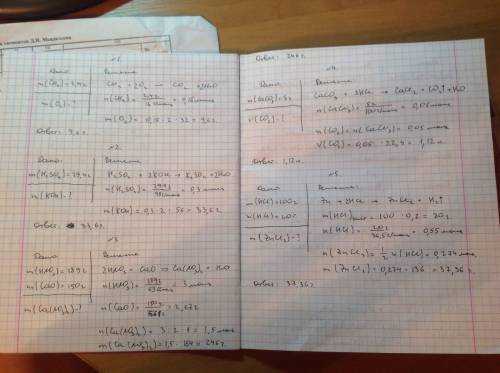 Д.И. Менделеева
№1
Дано
m(CH₄)=2,4г
m(O₂)-?
Решение
CH₄ + 2O₂ → CO₂ + 2H₂O
m(O₂)= 0,15 · 2 · 32 = 9,6г.
Ответ: 9,6г.
№2
Дано:
m(H₂SO₄)=29,4г
m(KOH)-?
Решение
H₂SO₄ + 2KOH → K₂SO₄ + 2H₂O
n(H₂SO₄)= 29,4г / 98г/моль = 0,3 моль
m(KOH)= 0,3 · 2 · 56 = 33,6г
Ответ: 33,6г.
№3
Дано
m(HNO₃)=189г
m(CaO)=150г
m(Ca(NO₃)₂)-?
Решение
2HNO₃ + CaO → Ca(NO₃)₂ + H₂O
n(HNO₃)= 189г / 63г/моль = 3 моль
n(Ca(NO₃)₂) = 3 : 2 · 1 = 1,5 моль
m(Ca(NO₃)₂)= 1,5 · 164 = 246г.
Ответ: 246г.
№4
Дано
m(CaCO₃)=5г
V(CO₂)-?
Решение
CaCO₃ + 2HCl → CaCl₂ + CO₂↑ + H₂O
n(CaCO₃)= 5г / 100г/моль = 0,05 моль
n(CO₂)= n(CaCO₃)= 0,05 моль
V(CO₂)= 0,05 · 22,4 = 1,12л
Ответ: 1,12л.
№5
Дано
m(HCl)=100г
m(ZnCl₂)-?
Решение
Zn + 2HCl → ZnCl₂ + H₂↑
100 · 0,2 = 20г
n(HCl)= 20г / 36,5г/моль = 0,55 моль
n(ZnCl₂)= ½ n(HCl)= 0,274 моль
m(ZnCl₂)= 0,274 · 136 = 37,36г.
Ответ: 37,36г.